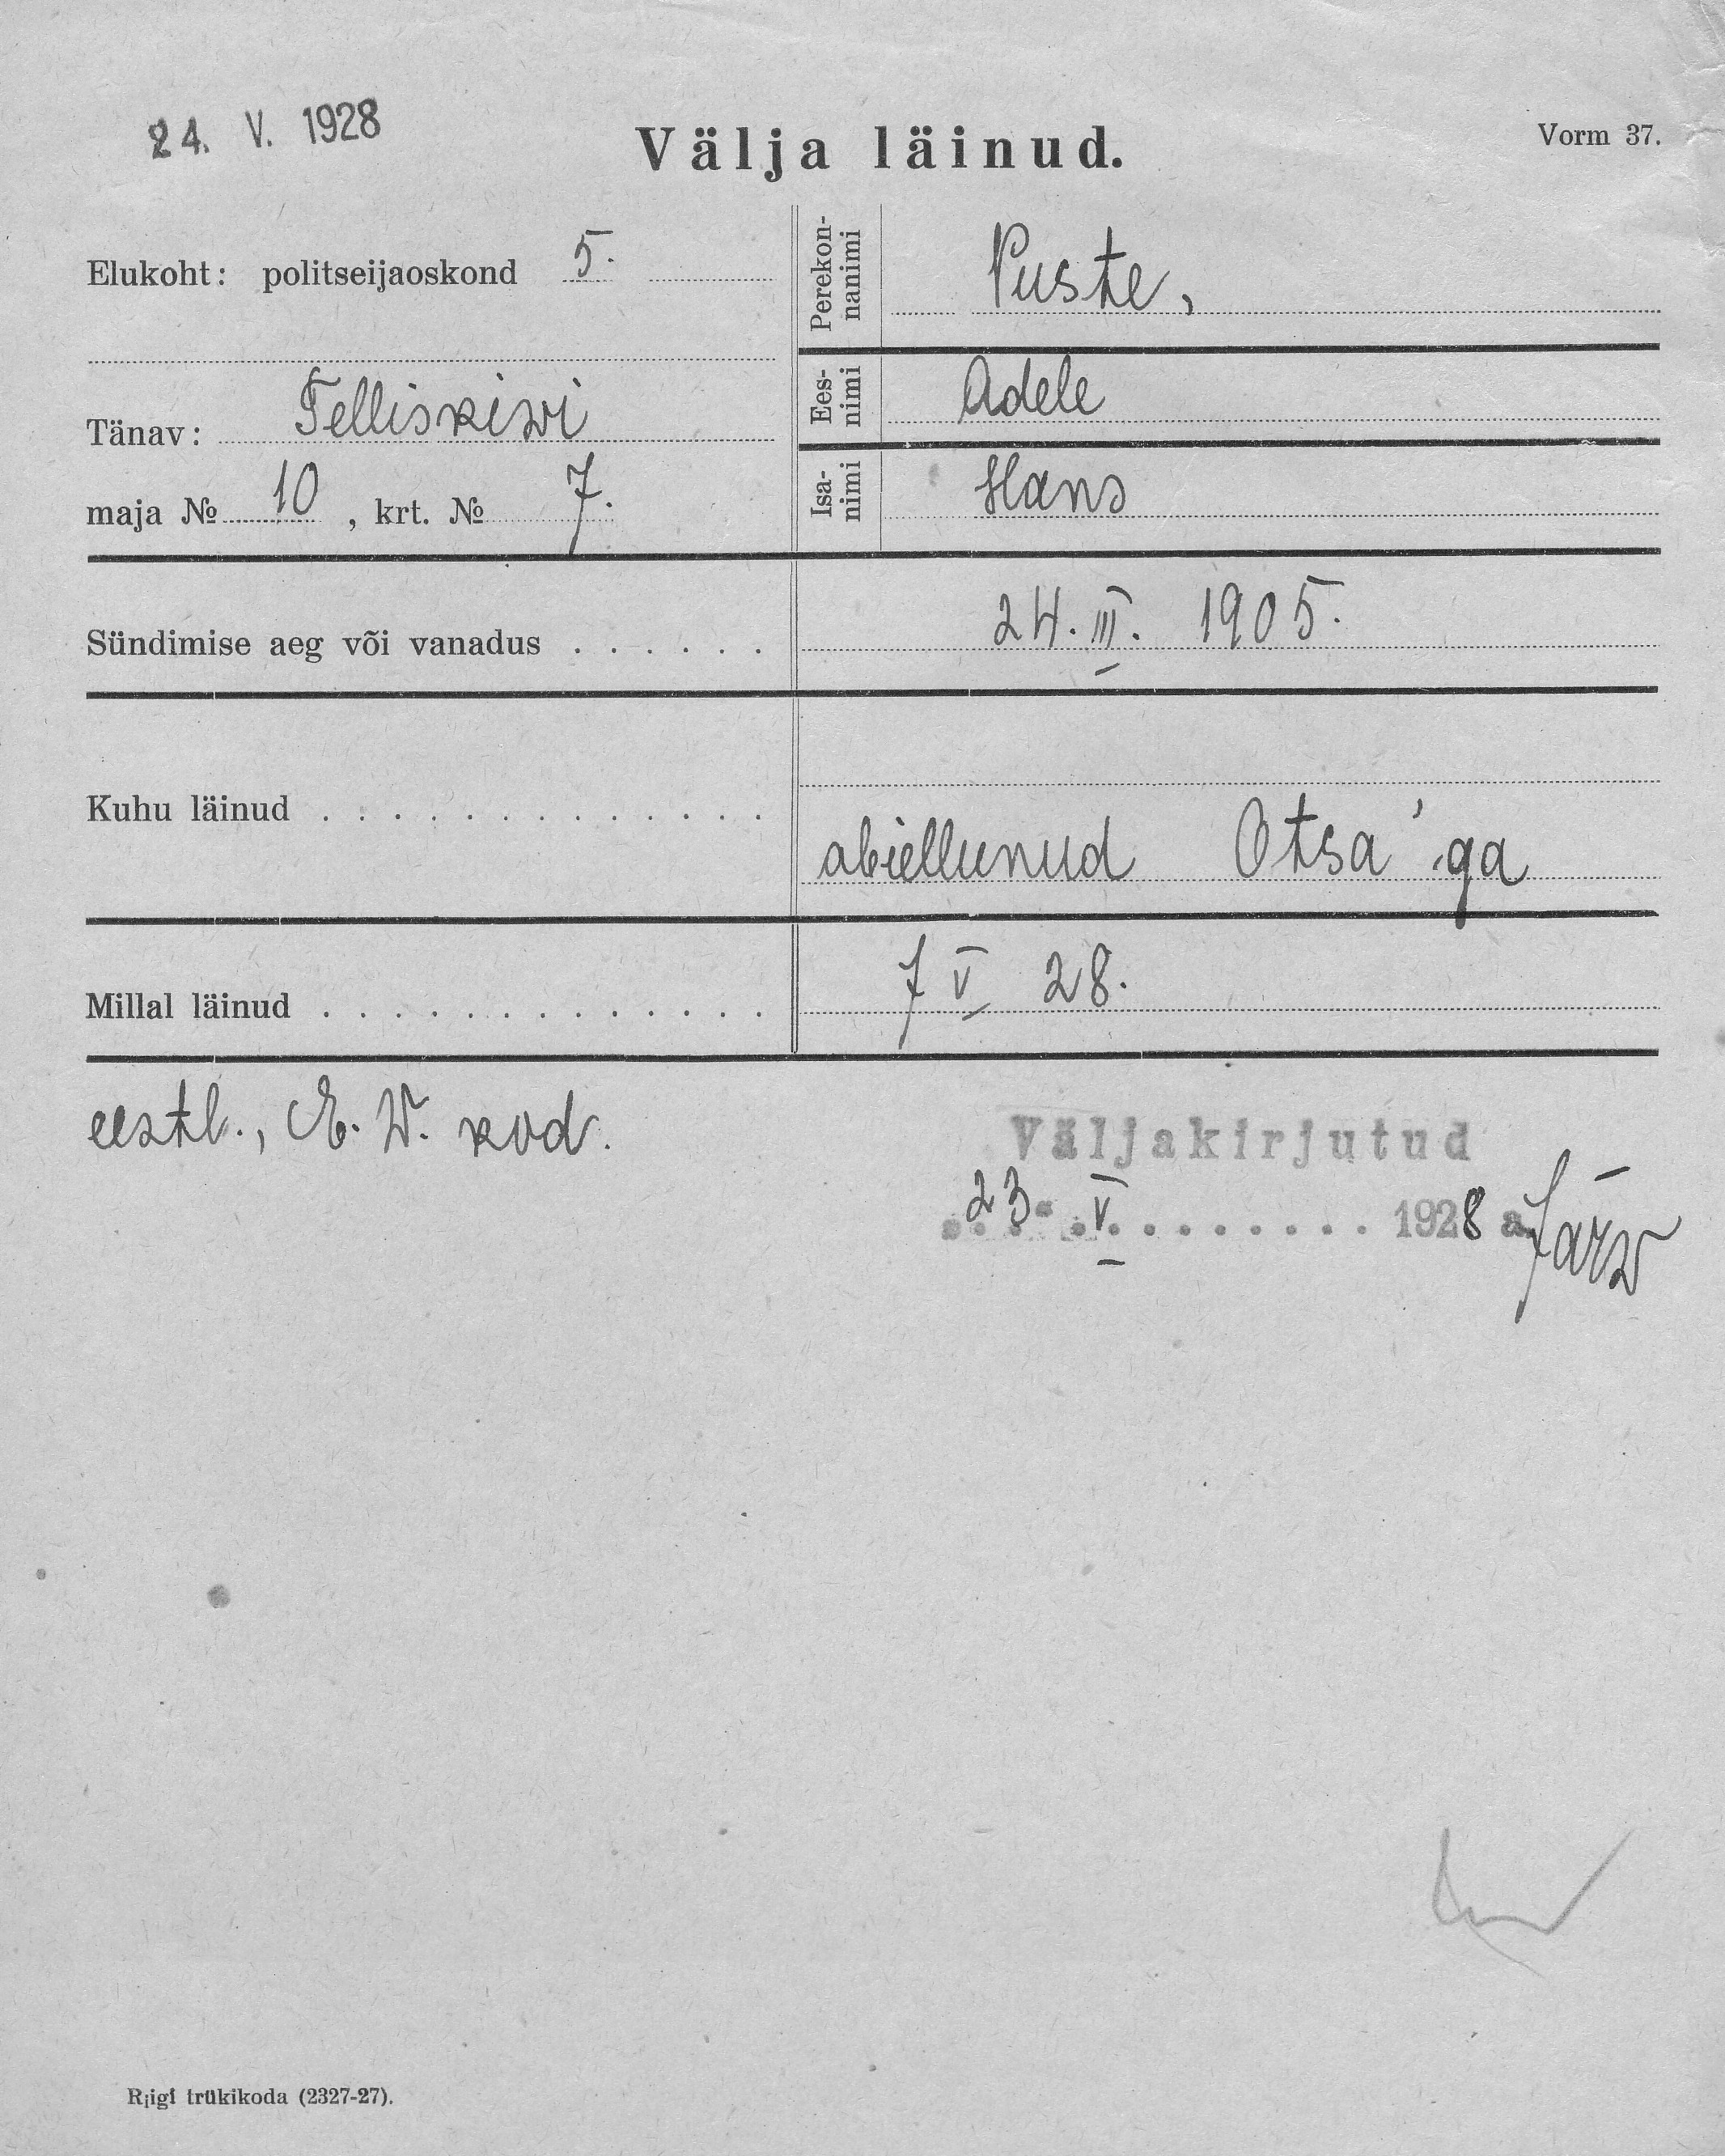 24. V. 1928
Välja läinud.
Vorm 37.
Elukoht: politseijaoskond 5.
Tänav: Telliskiwi
maja № 10, krt. № 7.
Perekon-
nanimi
Puste,
Ees-
nimi
Adele
Isa-
nimi
Hans
Sündimise aeg või vanadus . . . . . .
24. III. 1905.
Kuhu läinud . . . . . . . . . . . . .
abiellunud Otsa'ga
Millal läinud . . . . . . . . . . . . .
7 V 28.
eestl., E. W. kod.
Väljakirjutud
23. V. . . . . . . . 1928 a.
Järw
Riigi trükikoda (2327-27).